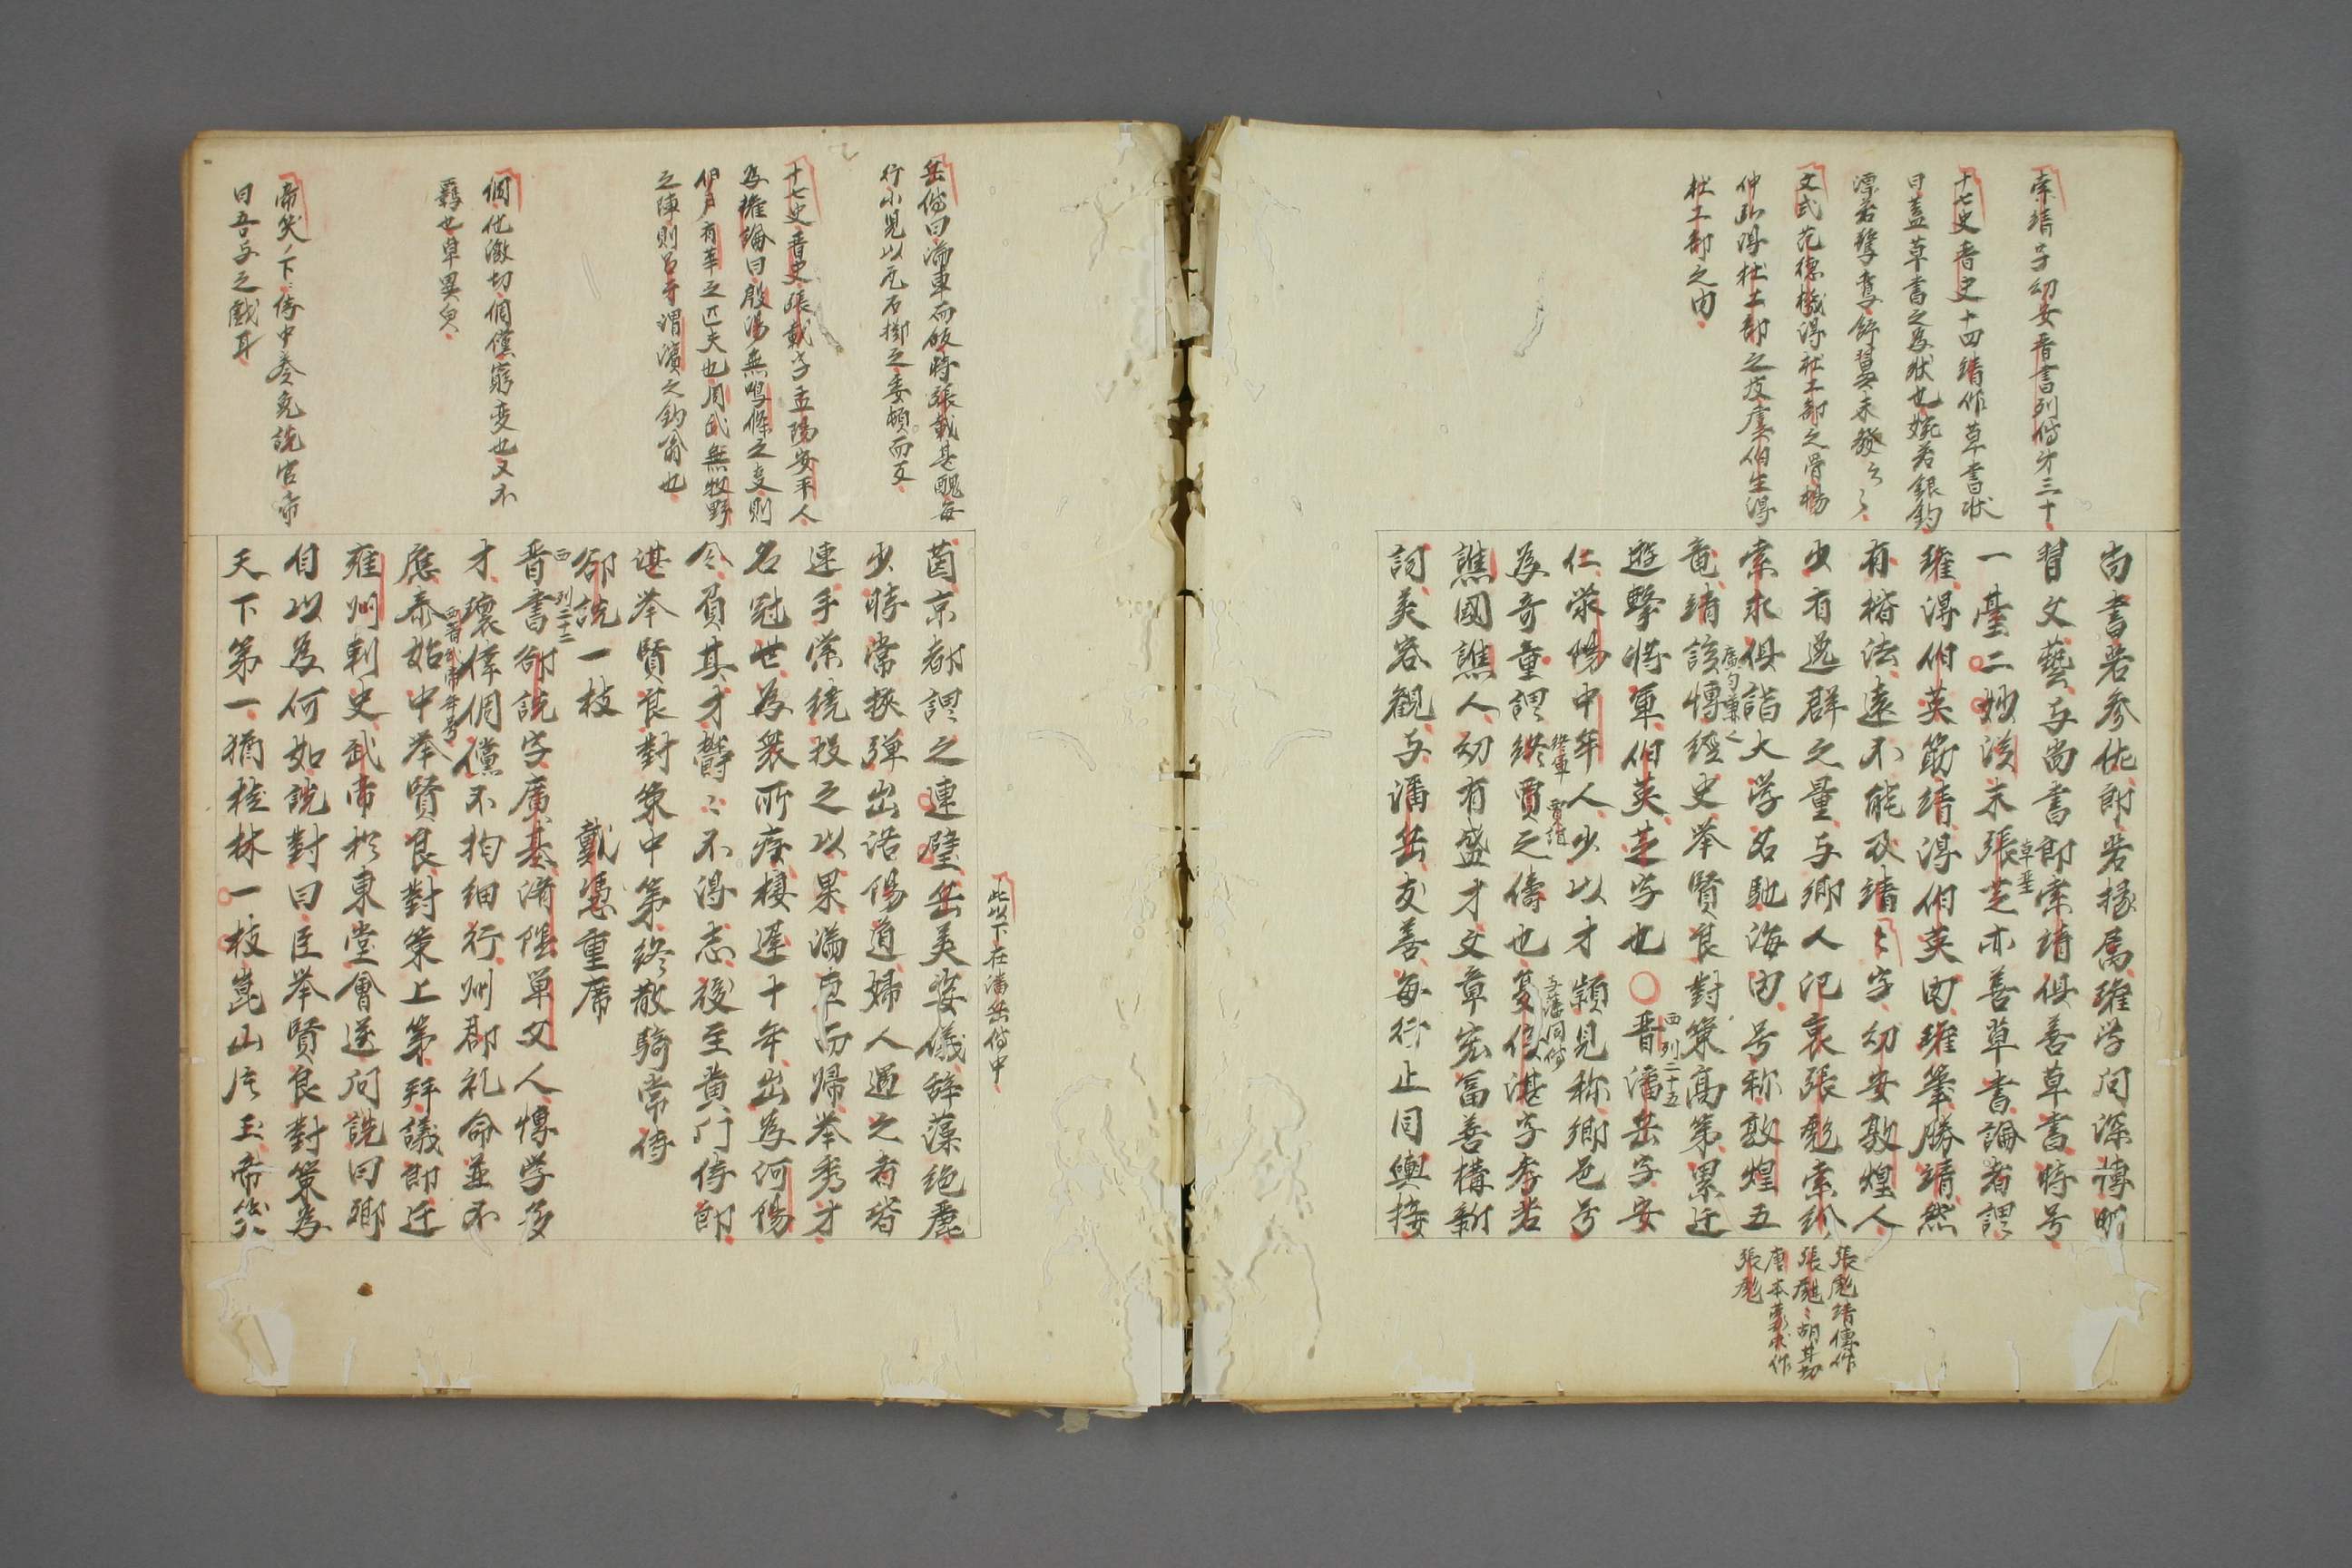 索靖字幼安晋書列傳才三十
十七史晋史十四靖作草書狀
曰蓋草書之為狀也婉若銀鈎
漂若驚鸞舒翼未發云々
文式范德機得杜工部之骨楊
仲弘得杜工部之皮虞伯生得
杜工部之肉
尚書若參佐郎若掾属瓘学问深博明
習文藝与尚書郎索靖俱善草書時号
一臺二妙漢末張芝亦善草書論者謂
草聖
瓘得伯英筋靖得伯英肉瓘筆勝靖然
有楷法遠不能及靖々字幼安敦煌人
少有逸群之量与鄉人氾衷張甝索紾
索永俱詣大学名馳海内号称敦煌五
竜靖該博經史举賢良對策高第累迁
遊擊将軍伯英芝字也○晋潘岳字安
西列二十五
仁滎陽中牟人少以才頴見称鄉邑号
為奇童謂終賈之儔也夏侯湛字孝若
終軍 賈誼
与潘同傳
譙國譙人幼有盛才文章宏冨善構新
詞美容觀与潘岳友善每行止同輿接
張彪靖傳作
張甝々胡甘切
唐本蒙求作
張彪
岳傳曰滿車而皈時張載甚醜每
行小児以瓦石擲之委頓而反
十七史晋史張載字孟陽安平人
為榷論曰殷湯無鳴條之支則
伊尹有莘之匹夫也周武無牧野
之陣則呂牙渭濱之釣翁也
倜他激切倜儻窮变也又不
羇也卓異皃
帝笑ノ下侍中奏免詵官帝
曰吾与之戯耳
此以下在潘岳傳中
茵京都謂之連璧岳美姿儀辞藻绝麗
少時常挾弾出洛陽道婦人遇之者皆
連手縈繞投之以果滿車而歸举秀才
名冠世為衆所疾棲遅十年出為河陽
令負其才欝々不得志後至黄门侍郎
湛举賢良對策中第終散騎常侍
郤詵一枝 戴憑重席
晋書郤詵字廣基濟隂單父人博学多
西 列二十二
才瓌偉倜儻不拘細行州郡礼命並不
應泰始中举賢良對策上第拜議郎迁
西晋武帝年号
雍州刺史武帝於東堂會送问詵曰卿
自以為何如詵對曰臣举賢良對策為
天下第一猶桂林一枝崑山片玉帝笑